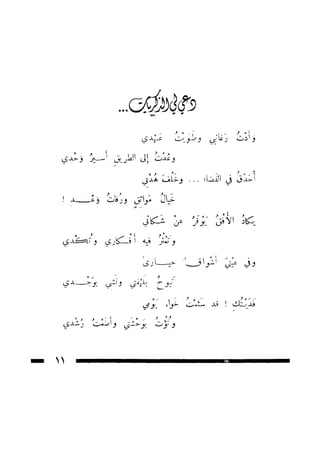 دعي لي الذكريات...
وَأَدْتُ رَغائبي وطَوَيْتُ عَهْدي
وعُدْتُ إلى الطريقِ أسيرُ وَحْدي
أُحَدِّقُ في الفضاءِ ... وخَلْفَ هُدْبي
خَيالُ مَواثقٍ ورُفاتُ وَعْـدِ !
يكادُ الأُفْقُ يَوْقَرُ عنْ شَكاتي
وتَعْثُرُ فيه أفـكاري
وفي عَيْنَيَّ أشواقٌ حيـــارى
تَبوحُ بلهفتي وتَشي بوَجْـــدي
فَدَيْتُكِ ! قد سئمتُ خواءَ يَوْمي
ونُؤْتُ بوَحْشتي وأضعْتُ رُشدي
١١